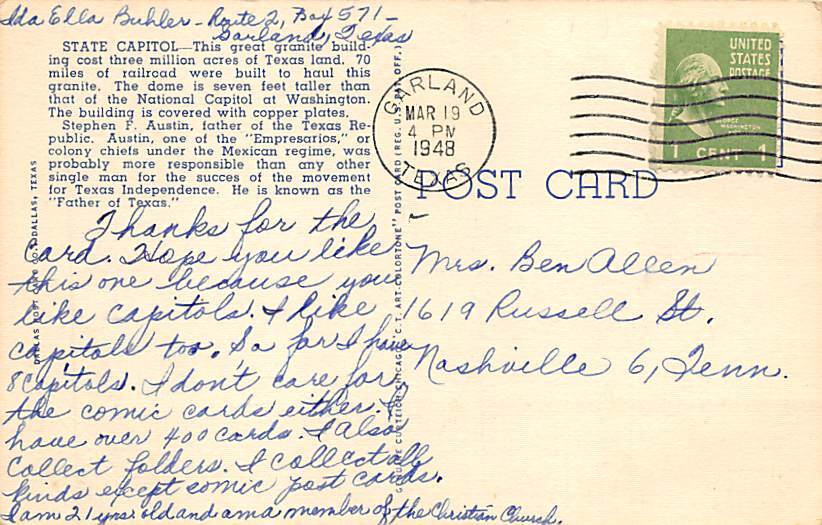 Ida Ella Buhler - Route 2, Box 571 -
Garland, Texas
STATE CAPITOL—This great granite build-
ing cost three million acres of Texas land. 70
miles of railroad were built to haul this
granite. The dome is seven feet taller than
that of the National Capitol at Washington.
The building is covered with copper plates.
Stephen F. Austin, father of the Texas Re-
public. Austin, one of the "Empresarios," or
colony chiefs under the Mexican regime, was
probably more responsible than any other
single man for the succes of the movement
for Texas Independence. He is known as the
"Father of Texas."
Thanks for the
card. Hope you like
this one because you
like capitols. I like
capitols too. So far I have
8 capitols. I don't care for
the comic cards either. I
have over 400 cards. I also
collect folders. I collect all
kinds except comic post cards.
I am 21 yrs. old and am a member of the Christian Church.
DALLAS POST CARD CO., DALLAS, TEXAS
GENUINE CURTEICH-CHICAGO "C.T. ART-COLORTONE" POST CARD (REG. U.S. PAT. OFF.)
GARLAND
MAR 19
4 PM
1948
TEXAS
UNITED
STATES
POSTAGE
GEORGE
WASHINGTON
1 CENT 1
POST CARD
Mrs. Ben Allen
1619 Russell St.
Nashville 6, Tenn.